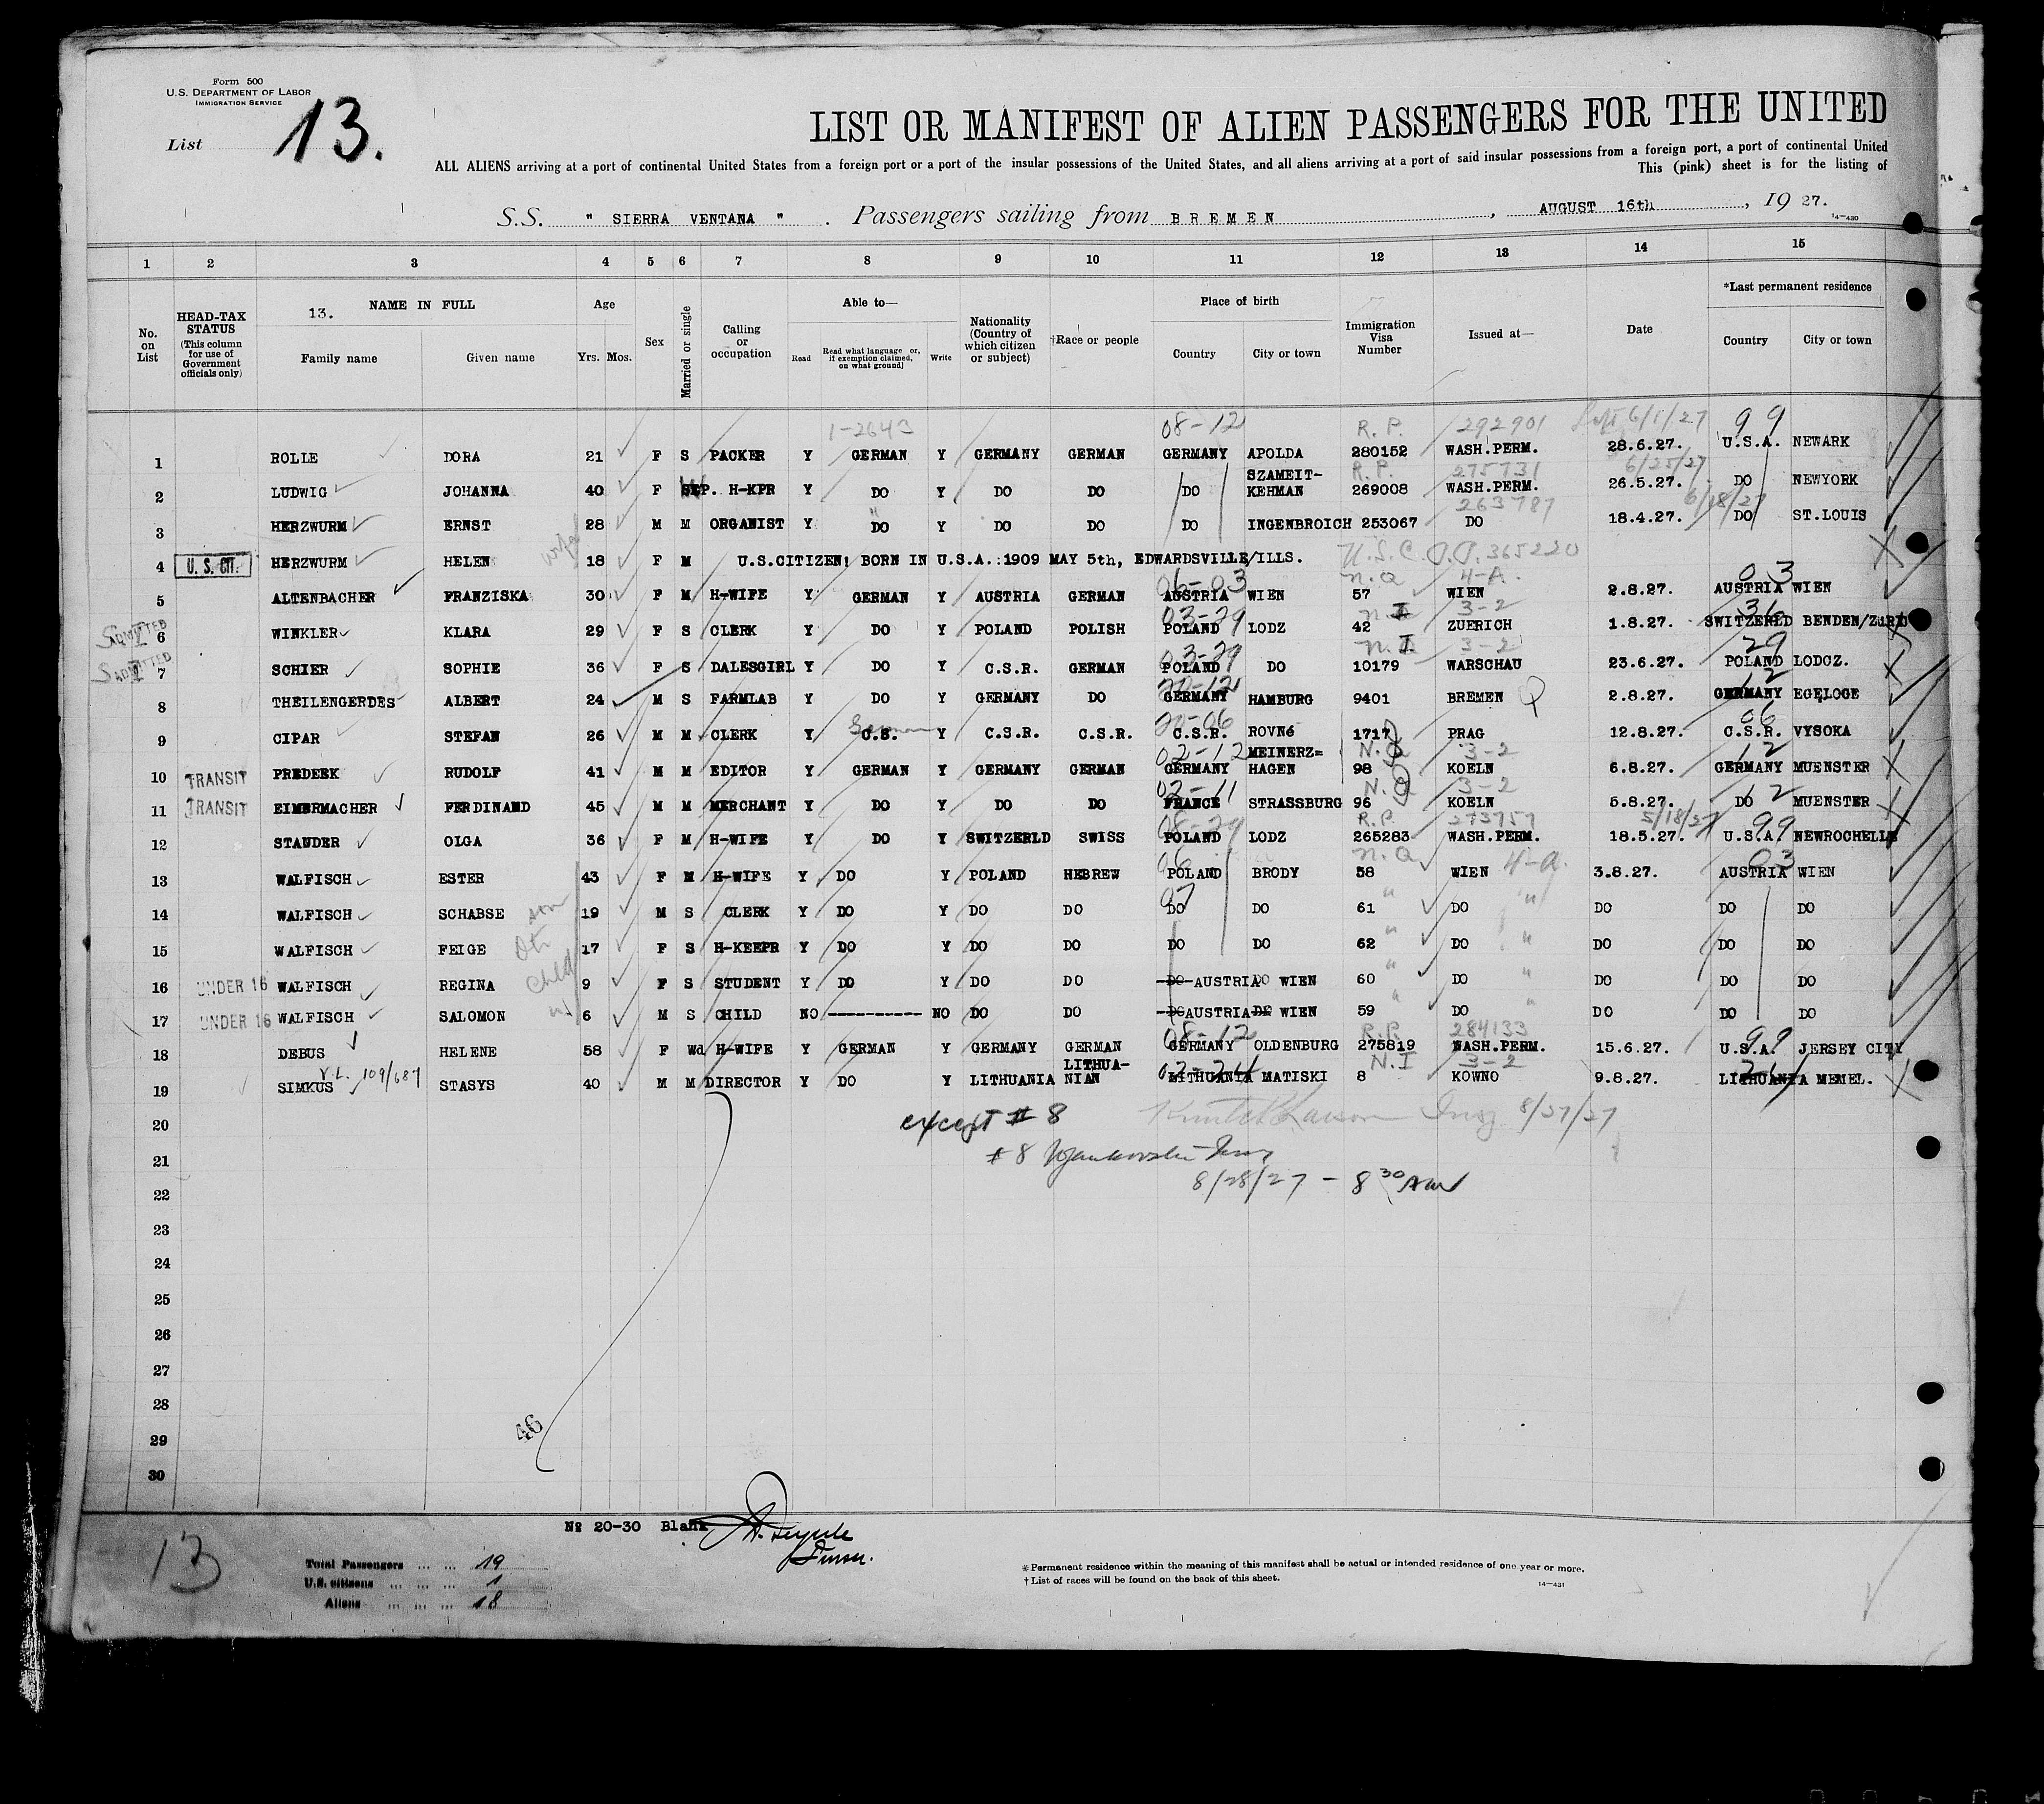 Form 500
U.S. DEPARTMENT OF LABOR
IMMIGRATION SERVICE
List 13.
LIST OR MANIFEST OF ALIEN PASSENGERS FOR THE UNITED
ALL ALIENS arriving at a port of continental United States from a foreign port or a port of the insular possessions of the United States, and all aliens arriving at a port of said insular possessions from a foreign port, a port of continental United
This (pink) sheet is for the listing of
S.S. " SIERRA VENTANA " . Passengers sailing from BREMEN , AUGUST 16th , 19 27.
14—430
1 2 3 4 5 6 7 8 9 10 11 12 13 14 15
No. on List
HEAD-TAX STATUS (This column for use of Government officials only)
13. NAME IN FULL
Family name Given name
Age
Yrs. Mos.
Sex
Married or single
Calling or occupation
Able to—
Read Read what language or, if exemption claimed, on what ground] Write
Nationality (Country of which citizen or subject)
†Race or people
Place of birth
Country City or town
Immigration Visa Number
Issued at—
Date
*Last permanent residence
Country City or town
1-2643 08-12 R.P. 292901 6/1/27 99
1 ROLLE DORA 21 F S PACKER Y GERMAN Y GERMANY GERMAN GERMANY APOLDA 280152 WASH.PERM. 28.6.27. U.S.A. NEWARK
R.P. 275731 6/25/27
2 LUDWIG JOHANNA 40 F SEP. H-KPR Y DO Y DO DO DO SZAMEIT-KEHMAN 269008 WASH.PERM. 26.5.27. DO NEWYORK
263787 6/18/27
3 HERZWURM ERNST 28 M M ORGANIST Y DO Y DO DO DO INGENBROICH 253067 DO 18.4.27. DO ST.LOUIS
4 U. S. CIT. HERZWURM HELEN wife 18 F M U.S.CITIZEN! BORN IN U.S.A.:1909 MAY 5th, EDWARDSVILLE/ILLS. U.S.C. P.P. 365220
06-03 N.Q 4-A. 03
5 ALTENBACHER FRANZISKA 30 F M H-WIFE Y GERMAN Y AUSTRIA GERMAN AUSTRIA WIEN 57 WIEN 2.8.27. AUSTRIA WIEN
ADMITTED 03-29 N.I 3-2 36
6 WINKLER KLARA 29 F S CLERK Y DO Y POLAND POLISH POLAND LODZ 42 ZUERICH 1.8.27. SWITZERLD BENDEN/ZURIC
ADMITTED 03-29 N.I 3-2 29
7 SCHIER SOPHIE 36 F S DALESGIRL Y DO Y C.S.R. GERMAN POLAND DO 10179 WARSCHAU 23.6.27. POLAND LODCZ.
20-12 12
8 THEILENGERDES ALBERT 24 M S FARMLAB Y DO Y GERMANY DO GERMANY HAMBURG 9401 BREMEN Q 2.8.27. GERMANY EGELOGE
German 20-06 06
9 CIPAR STEFAN 26 M M CLERK Y C.S. Y C.S.R. C.S.R. C.S.R. ROVNé 1717 PRAG 12.8.27. C.S.R. VYSOKA
02-12 N.Q 3-2 12
10 TRANSIT PREDEEK RUDOLF 41 M M EDITOR Y GERMAN Y GERMANY GERMAN GERMANY MEINERZ=HAGEN 98 KOELN 6.8.27. GERMANY MUENSTER
02-11 N.Q 3-2 12
11 TRANSIT EIMERMACHER FERDINAND 45 M M MERCHANT Y DO Y DO DO FRANCE STRASSBURG 96 KOELN 5.8.27. DO MUENSTER
08-29 R.P. 273757 5/18/27 99
12 STAUDER OLGA 36 F M H-WIFE Y DO Y SWITZERLD SWISS POLAND LODZ 265283 WASH.PERM. 18.5.27. U.S.A. NEWROCHELLE
06 N.Q 4-a. 03
13 WALFISCH ESTER 43 F M H-WIFE Y DO Y POLAND HEBREW POLAND BRODY 58 WIEN 3.8.27. AUSTRIA WIEN
14 WALFISCH SCHABSE son 19 M S CLERK Y DO Y DO DO DO DO 61 " DO " DO DO DO
15 WALFISCH FEIGE 17 F S H-KEEPR Y DO Y DO DO DO DO 62 " DO " DO DO DO
16 UNDER 16 WALFISCH REGINA child 9 F S STUDENT Y DO Y DO DO DO AUSTRIA DO WIEN 60 " DO " DO DO DO
17 UNDER 16 WALFISCH SALOMON 6 M S CHILD NO ---------- NO DO DO DO AUSTRIA DO WIEN 59 " DO " DO DO DO
08-12 R.P. 284133 99
18 DEBUS HELENE 58 F Wd H-WIFE Y GERMAN Y GERMANY GERMAN GERMANY OLDENBURG 275819 WASH.PERM. 15.6.27. U.S.A. JERSEY CITY
V.L. 109/687 02-24 N.I 3-2
19 SIMKUS STASYS 40 M M DIRECTOR Y DO Y LITHUANIA LITHUA-NIAN LITHUANIA MATISKI 8 KOWNO 9.8.27. LITHUANIA MEMEL.
20 except # 8 8/27/27
21 # 8
22 8/28/27 - 8 30 AM
23
24
25
26
27
28
29
46
30
№ 20-30 Blank
13
Total Passengers ... ... 19
U.S. citizens ... ... ... 1
Aliens ... ... ... 18
*Permanent residence within the meaning of this manifest shall be actual or intended residence of one year or more.
†List of races will be found on the back of this sheet.
14—431